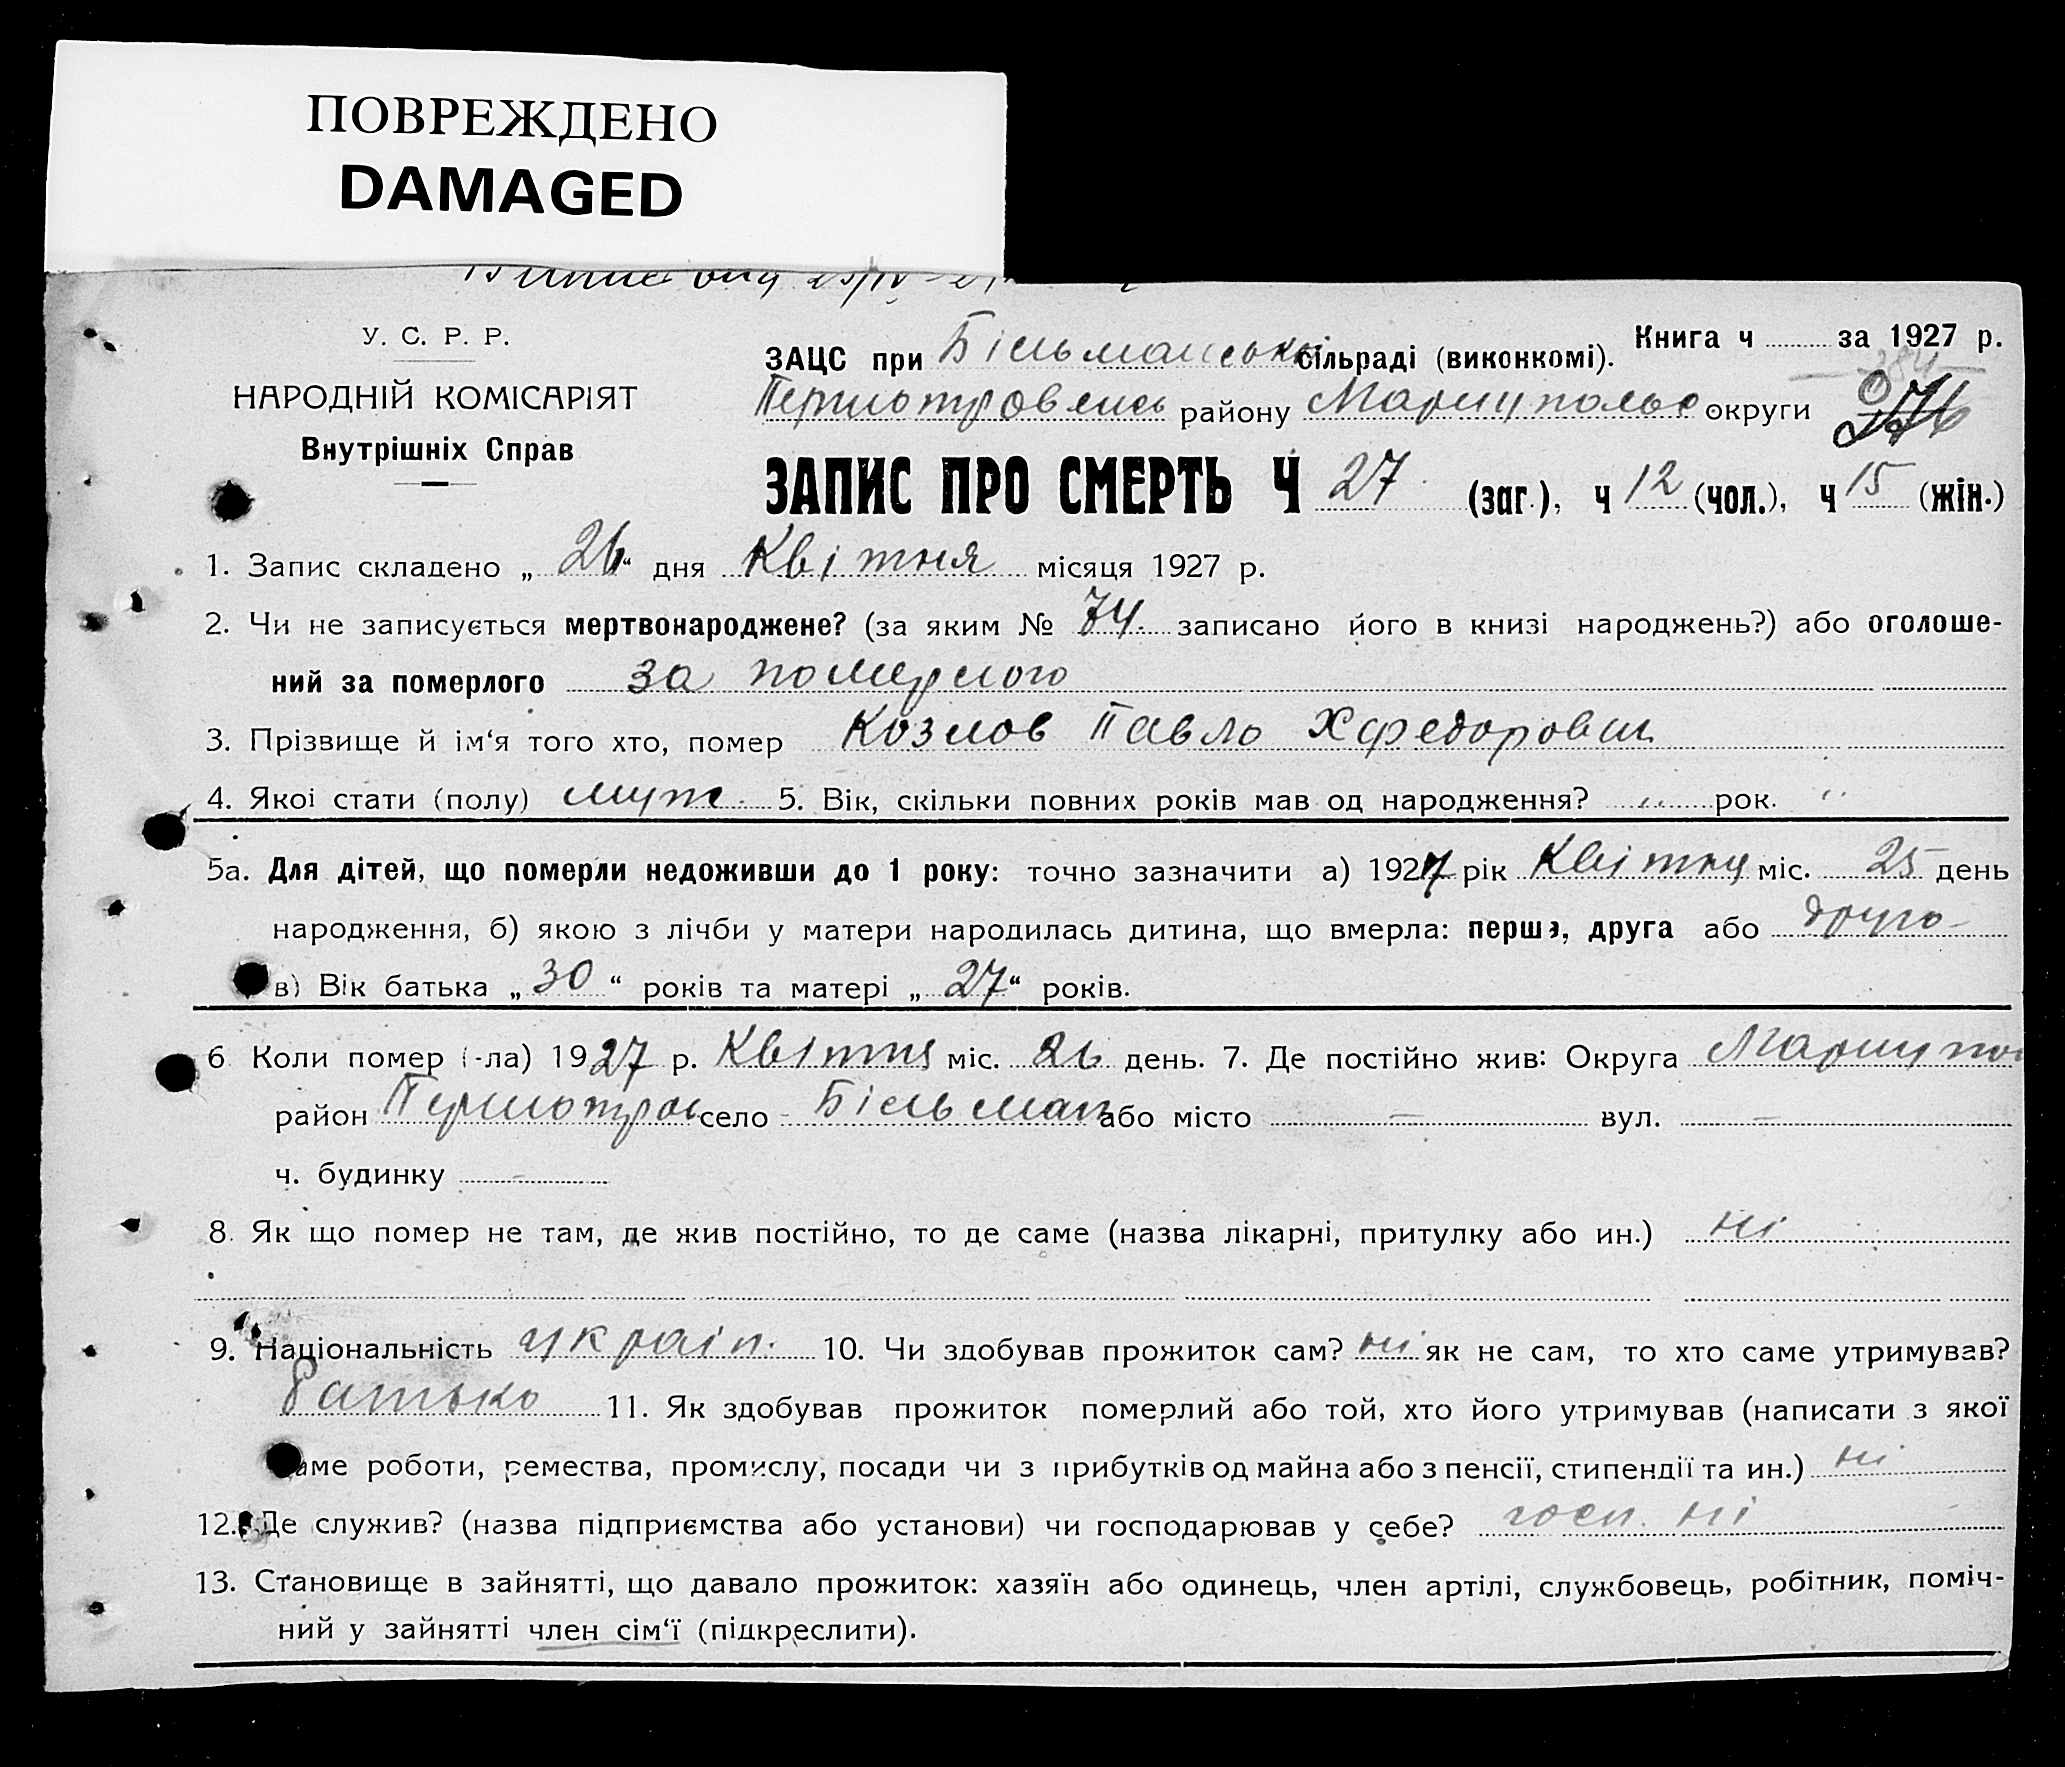 ПОВРЕЖДЕНО
DAMAGED
У. С. Р. Р.
НАРОДНІЙ КОМІСАРІЯТ
Внутрішніх Справ
Книга ч за 1927 р.
ЗАЦС при Більманській сільраді (виконкомі).
району округи
ЗАПИС ПРО СМЕРТЬ Ч 27 (заг.), ч 12 (чол.), ч 15 (жін.)
1. Запис складено „ 26 “ дня Квітня місяця 1927 р.
2. Чи не записується мертвонароджене? (за яким № 74. записано його в книзі народжень?) або оголоше-
ний за померлого за померлого
3. Прізвище й ім‘я того хто, помер Козлов Павло
4. Якої стати (полу) муж. 5. Вік, скільки повних років мав од народження? „ рок. „
5а. Для дітей, що померли недоживши до 1 року: точно зазначити а) 1927 рік Квітня міс. 25 день
народження, б) якою з лічби у матери народилась дитина, що вмерла: перша, друга або друго
в) Вік батька „ 30 “ років та матері „ 27 “ років.
6 Коли помер (-ла) 1927 р. Квітня міс. 26 день. 7. Де постійно жив: Округа Мариупол
район село Більман або місто — вул. —
ч. будинку -
8. Як що помер не там, де жив постійно, то де саме (назва лікарні, притулку або ин.) ні
9. Національність україн. 10. Чи здобував прожиток сам? ні як не сам, то хто саме утримував?
батько 11. Як здобував прожиток померлий або той, хто його утримував (написати з якої
саме роботи, ремества, промислу, посади чи з прибутків од майна або з пенсії, стипендії та ин.) ні
12. Де служив? (назва підприємства або установи) чи господарював у себе? госп. ні
13. Становище в зайнятті, що давало прожиток: хазяїн або одинець, член артілі, службовець, робітник, поміч-
ний у зайнятті член сім‘ї (підкреслити).